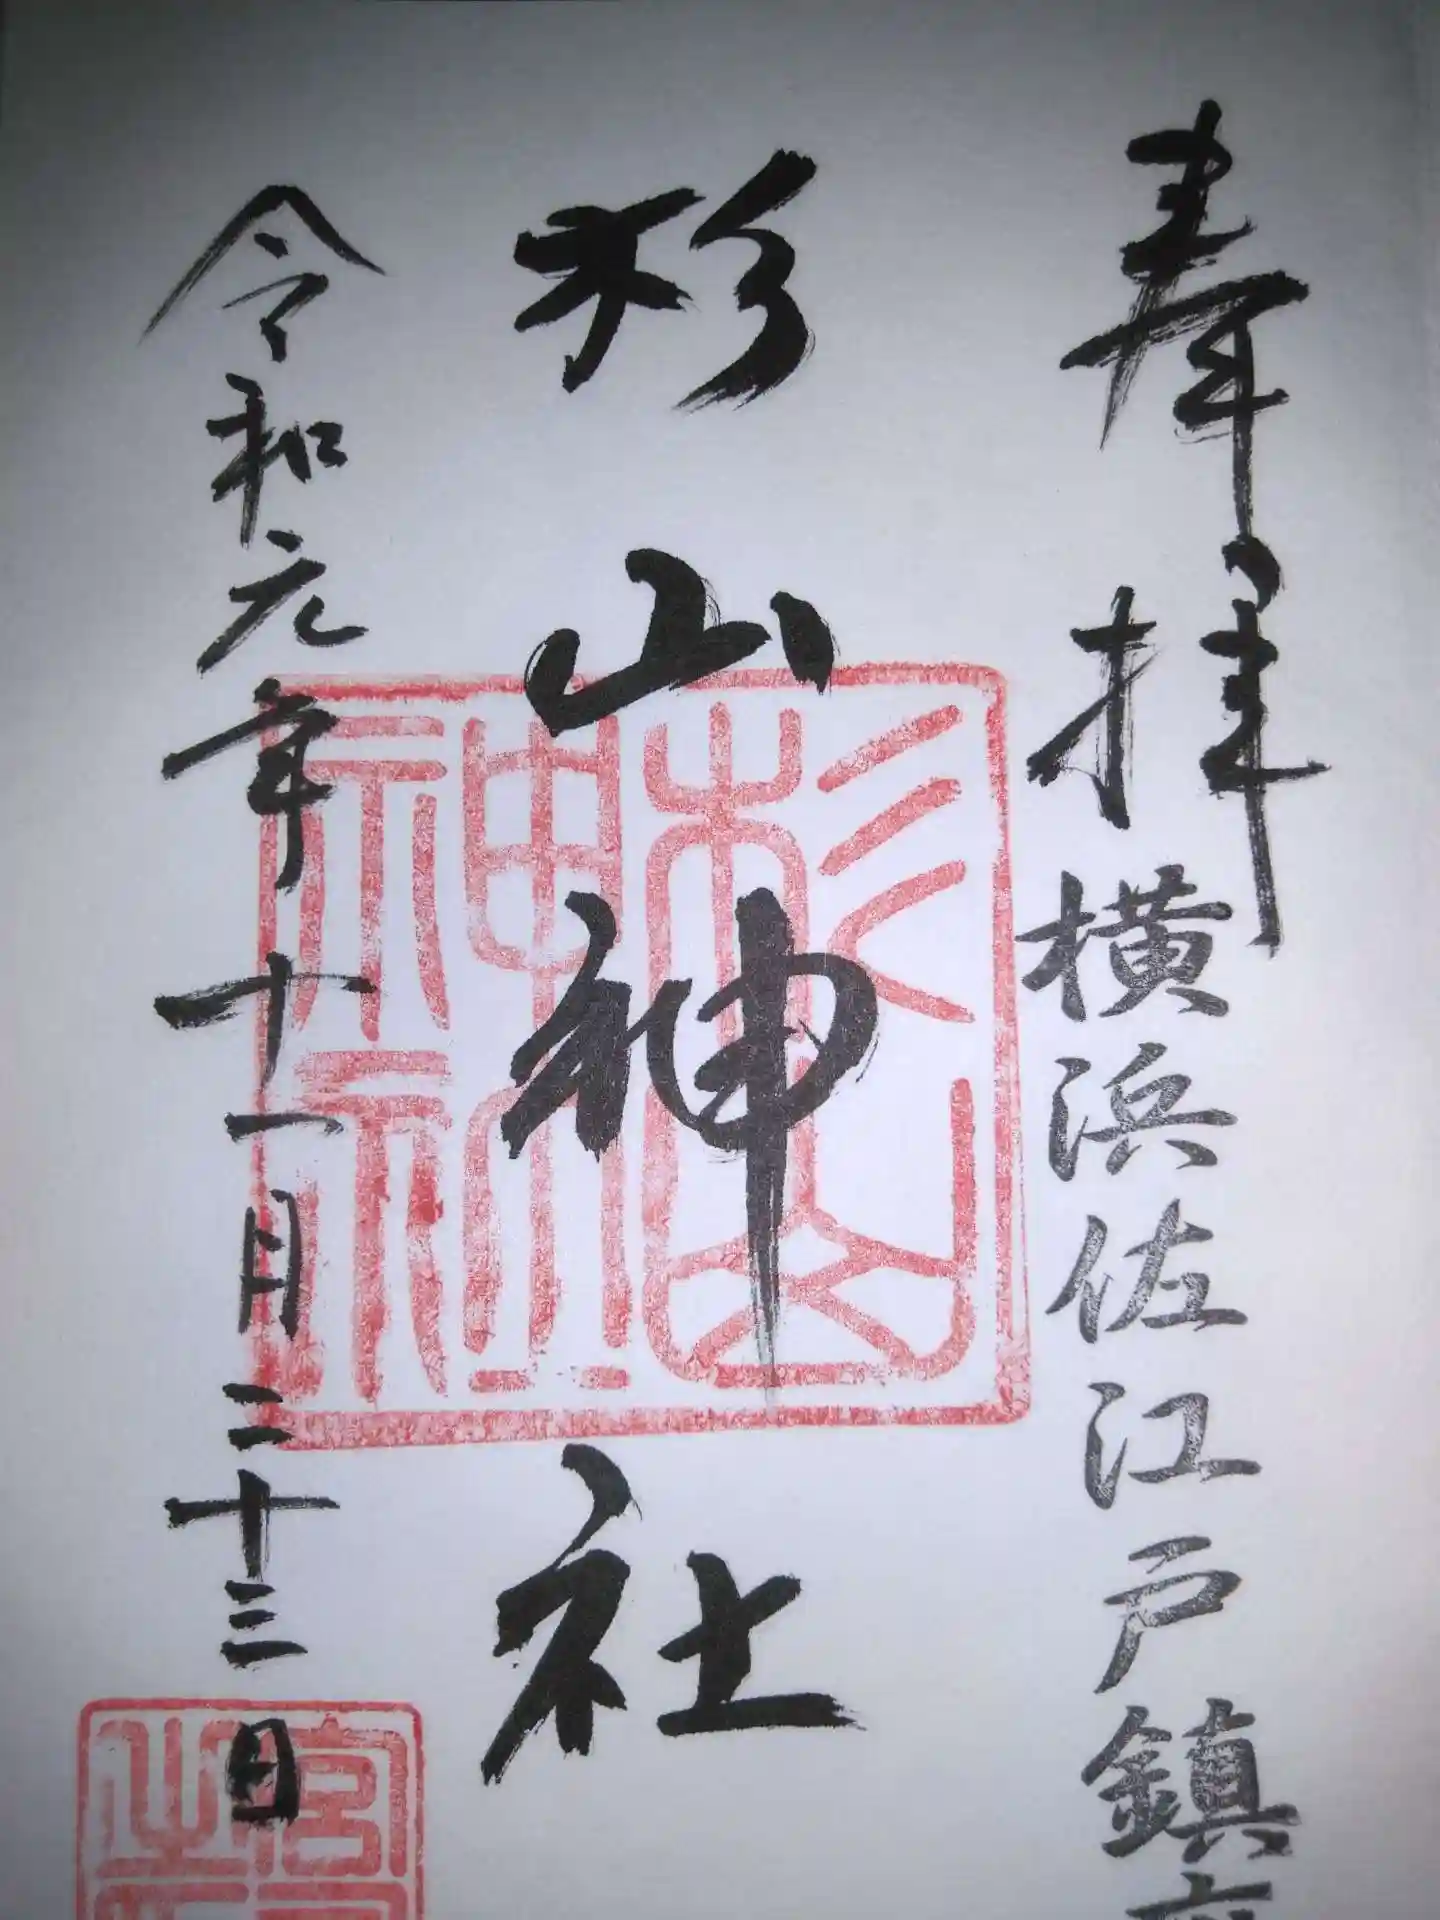 奉拝
横浜佐江戸鎮
杉山神社
杉山神社
令和元年十一月二十三日
宮之